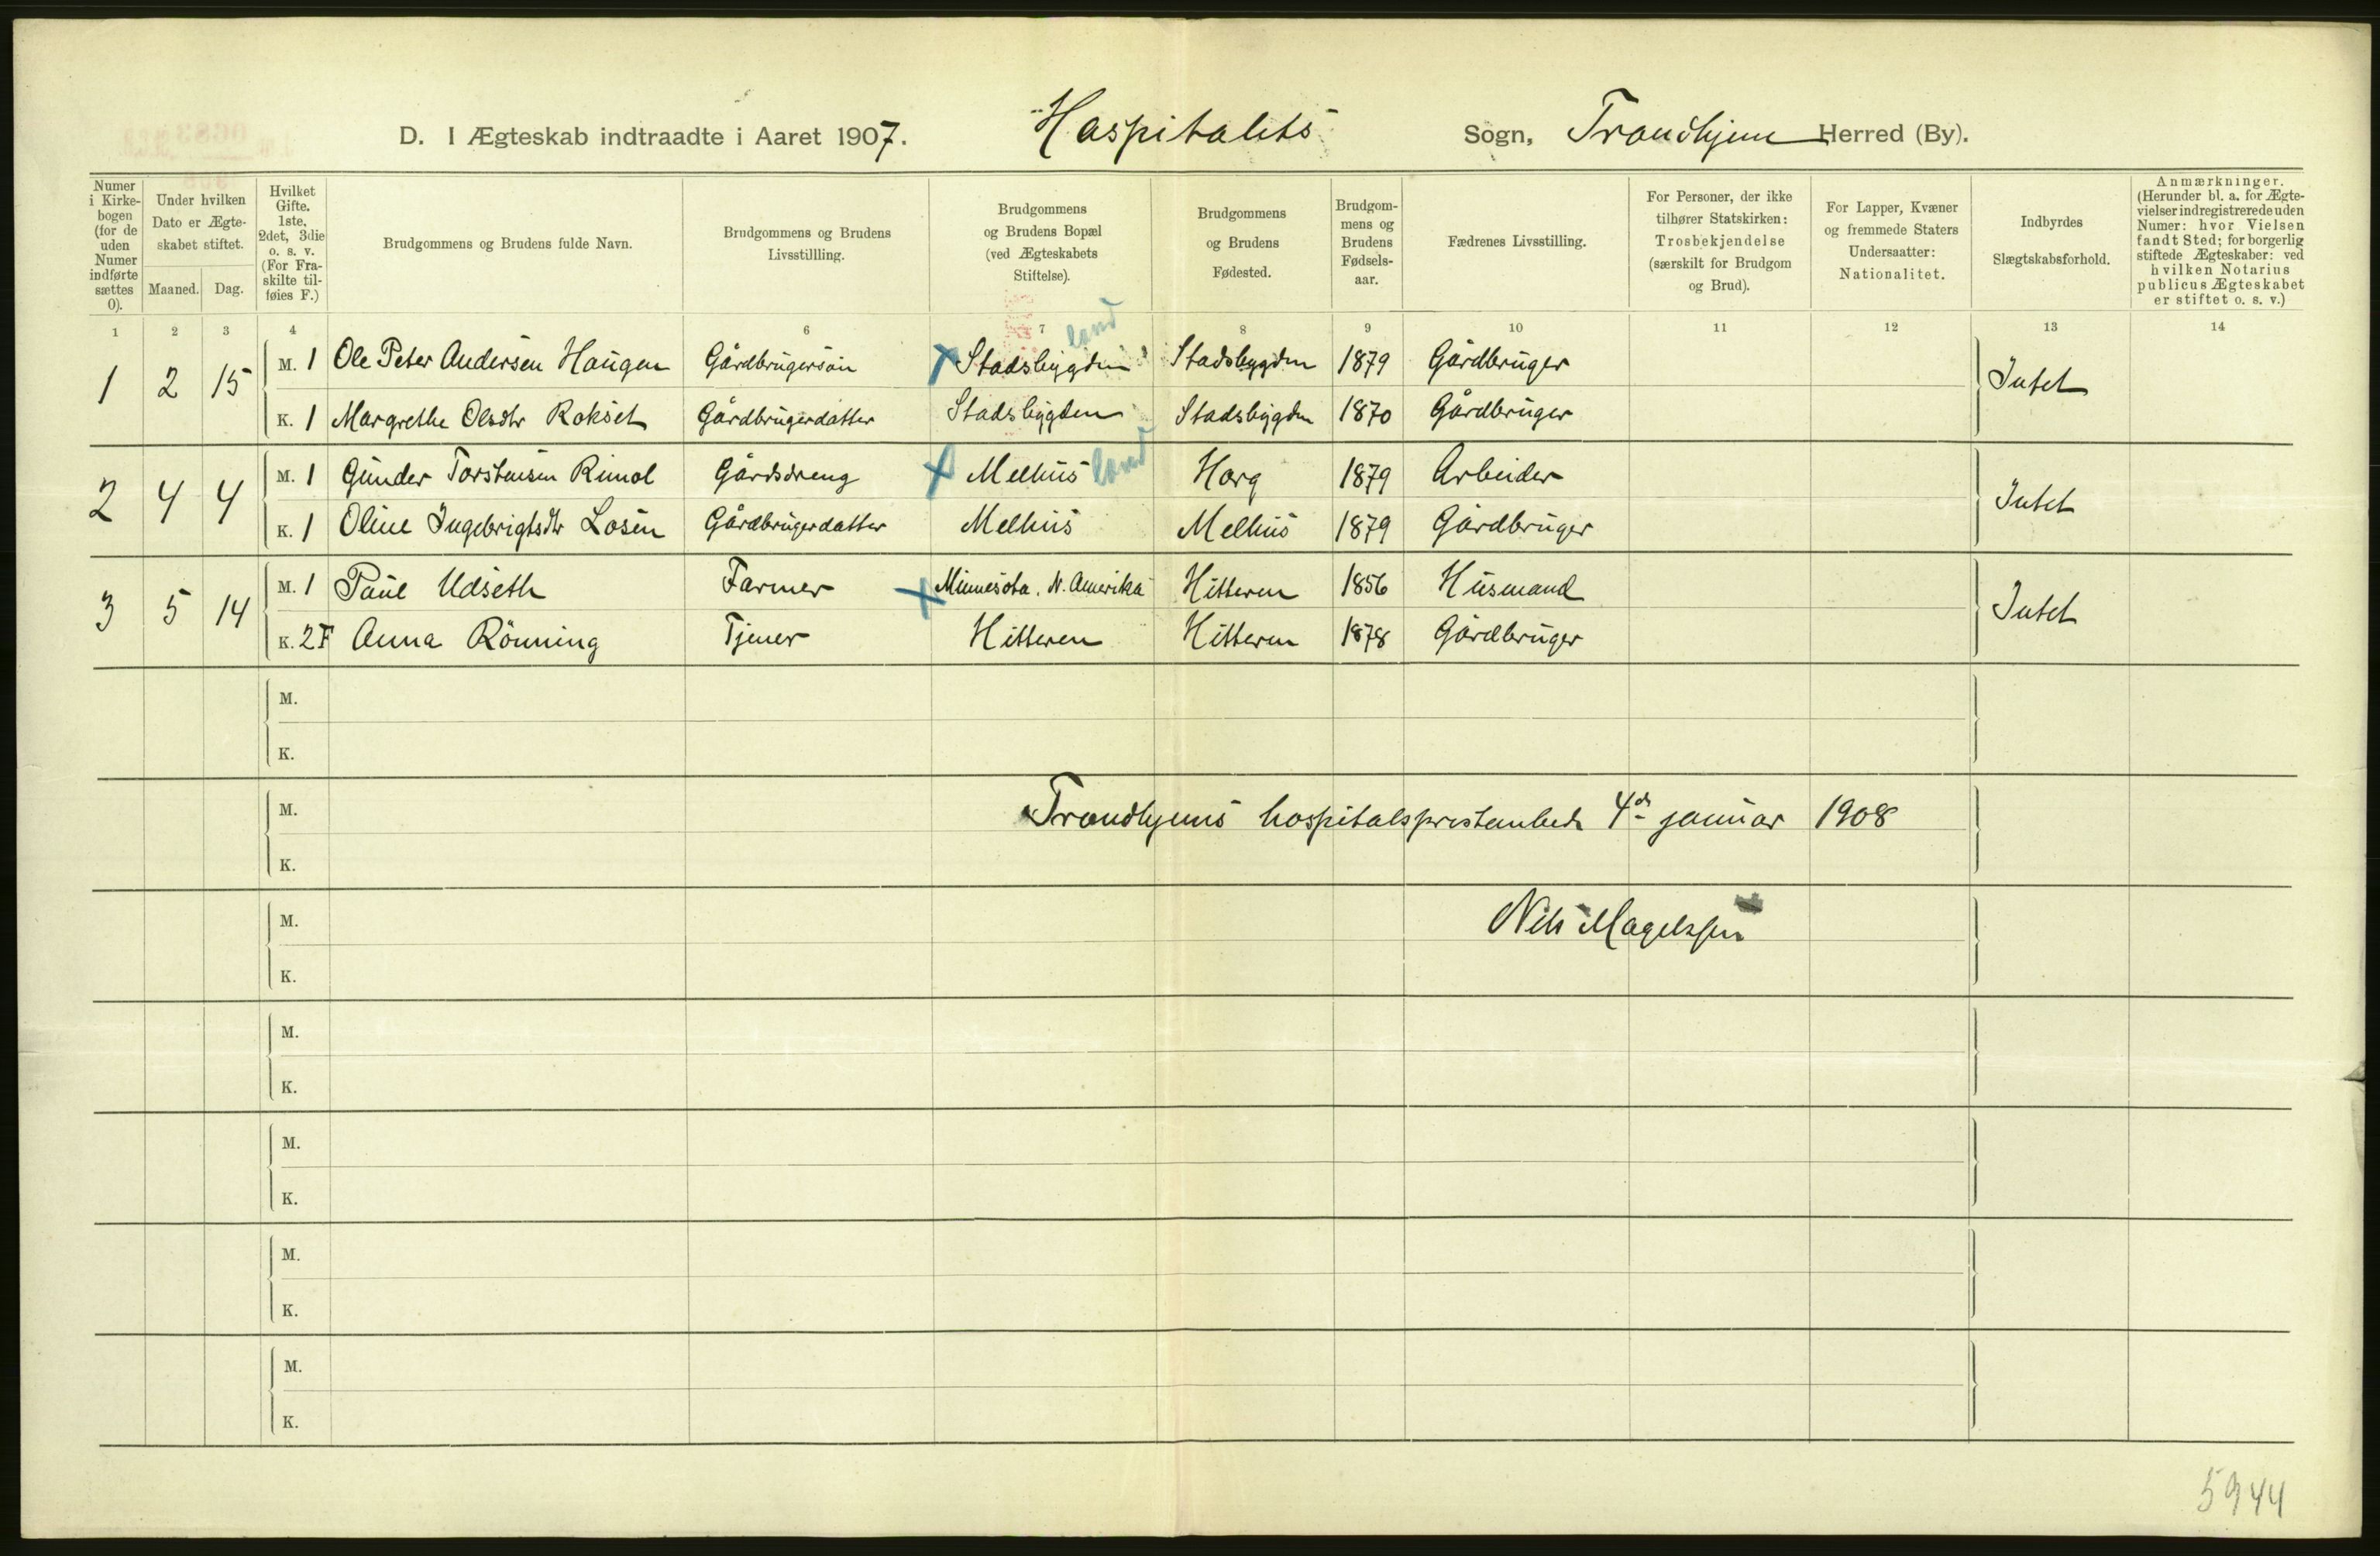 D. I Ægteskab indtraadte i Aaret 1907. Hospitalets Sogn, Trondhjem Herred (By).
Numer i Kirkebogen (for de uden Numer indførte sættes 0).
Under hvilken Dato er Ægteskabet stiftet.
Maaned. Dag.
Hvilket Gifte. 1ste, 2det, 3die o. s. v. (For Fraskilte tilføies F.)
Brudgommens og Brudens fulde Navn.
Brudgommens og Brudens Livsstillling.
Brudgommens og Brudens Bopæl (ved Ægteskabets Stiftelse).
Brudgommens og Brudens Fødested.
Brudgommens og Brudens Fødselsaar.
Fædrenes Livsstilling.
For Personer, der ikke tilhører Statskirken: Trosbekjendelse (særskilt for Brudgom og Brud).
For Lapper, Kvæner og fremmede Staters Undersaatter: Nationalitet.
Indbyrdes Slægtskabsforhold.
Anmærkninger. (Herunder bl. a. for Ægtevielser indregistrerede uden Numer: hvor Vielsen fandt Sted; for borgerlig stiftede Ægteskaber: ved hvilken Notarius publicus Ægteskabet er stiftet o. s. v.)
1 2 3 4 6 7 8 9 10 11 12 13 14
land
1 2 15 M. 1 Ole Peter Andersen Haugen Gårdbrugersøn x Stadsbygden Stadsbygden 1879 Gårdbruger Intet
K. 1 Margrethe Olsdtr Rokset Gårdbrugerdatter Stadsbygden Stadsbygden 1870 Gårdbruger
2 4 4 M. 1 Gunder Torstensen Rimol Gårdsdreng x Melhus land Horg 1879 Arbeider Intet
K. 1 Oline Ingebrigtsdtr Losen Gårdbrugerdatter Melhus Melhus 1879 Gårdbruger
3 5 14 M. 1 Paul Udseth Farmer x Minnesota. N. Amerika Hitteren 1856 Husmand Intet
K. 2F Anna Rönning Tjener Hitteren Hitteren 1878 Gårdbruger
M.
K.
M.
Trondhjems hospitalsprestembede 4de januar 1908
K.
M.
Nils Magelssen
K.
M.
K.
M.
K.
M.
K.
M.
K.
5944